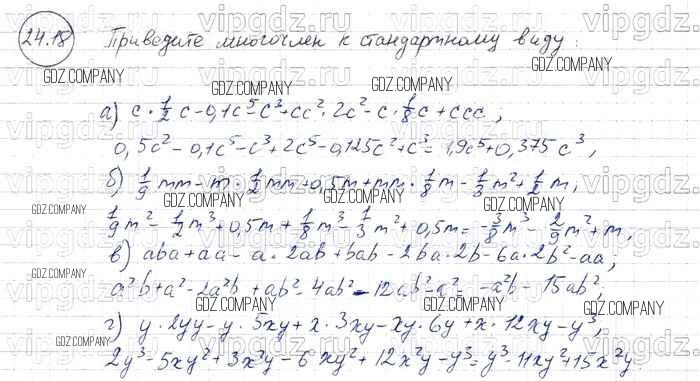 24.18 Приведите многочлен к стандартному виду:
а) c · 1/2 c - 0,1c⁵ - c³ + cc² · 2c² - c · 1/8 c + ccc;
0,5c² - 0,1c⁵ - c³ + 2c⁵ - 0,125c² + c³ = 1,9c⁵ + 0,375c³;
б) 1/9 mm - m · 1/2 mm + 0,5m + mm · 1/8 m - 1/3 m² + 1/2 m;
1/9 m² - 1/2 m³ + 0,5m + 1/8 m³ - 1/3 m² + 0,5m = -3/8 m³ - 2/9 m² + m;
в) aba + aa - a · 2ab + bab - 2ba · 2b - 6a · 2b² - aa;
a²b + a² - 2a²b + ab² - 4ab² - 12ab² - a² = -a²b - 15ab²;
г) y · 2yy - y · 5xy + x · 3xy - xy · 6y + x · 12xy - y³;
2y³ - 5xy² + 3x²y - 6xy² + 12x²y - y³ = y³ - 11xy² + 15x²y.
GDZ.COMPANY
GDZ.COMPANY
GDZ.COMPANY
GDZ.COMPANY
GDZ.COMPANY
GDZ.COMPANY
GDZ.COMPANY
GDZ.COMPANY
GDZ.COMPANY
GDZ.COMPANY
GDZ.COMPANY
GDZ.COMPANY
GDZ.COMPANY
vipgdz.ru